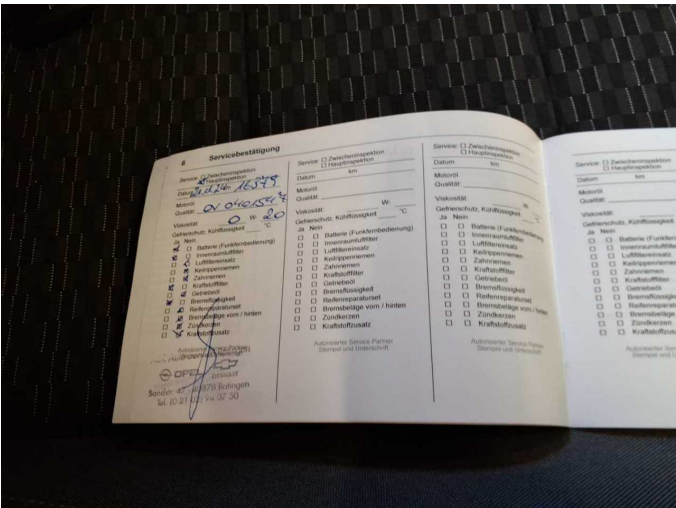 6 Servicebestätigung
Service: Zwischeninspektion
Hauptinspektion
Datum 16579
Motoröl
Qualität OV 0401547
Viskosität 0 W- 20
Gefrierschutz, Kühlflüssigkeit °C
Ja Nein
Batterie (Funkfernbedienung)
Innenraumluftfilter
Luftfiltereinsatz
Keilrippenriemen
Zahnriemen
Kraftstofffilter
Getriebeöl
Bremsflüssigkeit
Reifenreparaturset
Bremsbeläge vorn / hinten
Zündkerzen
Kraftstoffzusatz
Autorisierter Service Partner
OPEL
Ratingen
Service: Zwischeninspektion
Hauptinspektion
Datum km
Motoröl
Qualität
Viskosität W-
Gefrierschutz, Kühlflüssigkeit °C
Ja Nein
Batterie (Funkfernbedienung)
Innenraumluftfilter
Luftfiltereinsatz
Keilrippenriemen
Zahnriemen
Kraftstofffilter
Getriebeöl
Bremsflüssigkeit
Reifenreparaturset
Bremsbeläge vorn / hinten
Zündkerzen
Kraftstoffzusatz
Autorisierter Service Partner
Stempel und Unterschrift
Service: Zwischeninspektion
Hauptinspektion
Datum km
Motoröl
Qualität
Viskosität W-
Gefrierschutz, Kühlflüssigkeit °C
Ja Nein
Batterie (Funkfernbedienung)
Innenraumluftfilter
Luftfiltereinsatz
Keilrippenriemen
Zahnriemen
Kraftstofffilter
Getriebeöl
Bremsflüssigkeit
Reifenreparaturset
Bremsbeläge vorn / hinten
Zündkerzen
Kraftstoffzusatz
Autorisierter Service Partner
Stempel und Unterschrift
Service: Zwischeninspektion
Hauptinspektion
Datum km
Motoröl
Qualität
Viskosität
Gefrierschutz, Kühlflüssigkeit
Ja Nein
Batterie (Funkfernbed
Innenraumluftfilter
Luftfiltereinsatz
Keilrippenrieme
Zahnriemen
Kraftstofffilter
Getriebeöl
Bremsflüssigke
Reifenreparat
Bremsbeläge
Zündkerzen
Kraftstoffzus
Autorisierter Se
Stempel und U